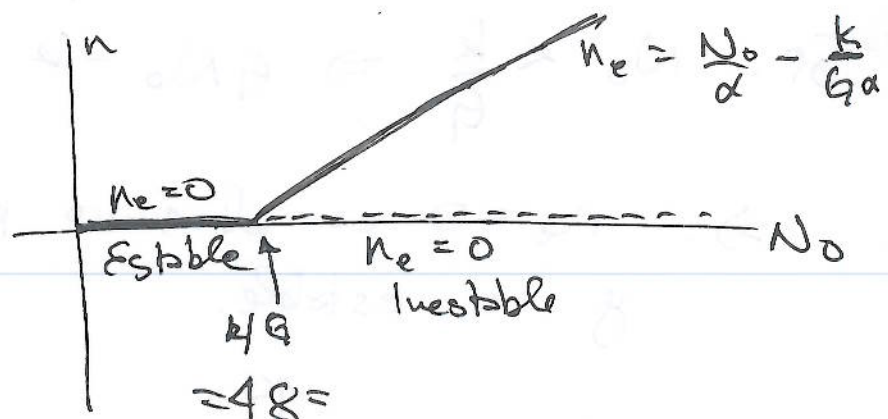 n
n_e = N_0/α - k/Gα
n_e = 0
Estable
n_e = 0
N_0
Inestable
k/G
=48=